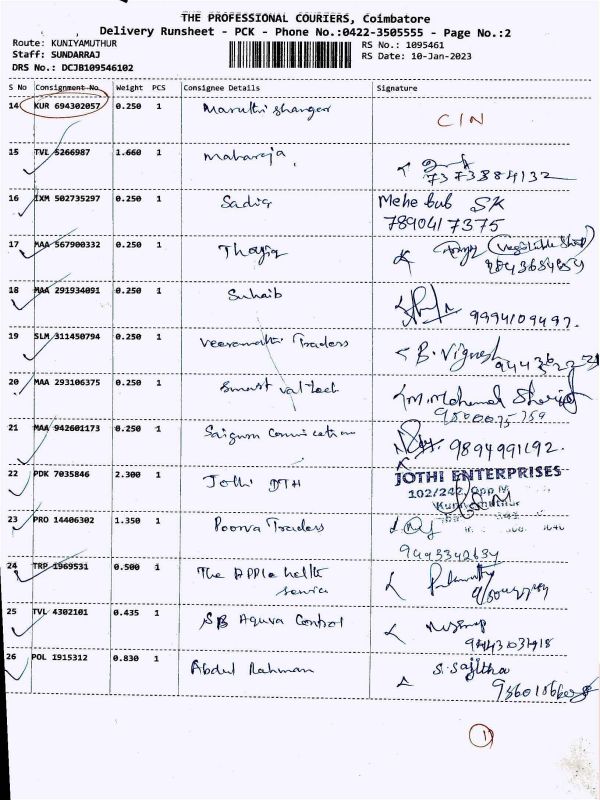 THE PROFESSIONAL COURIERS, Coimbatore
Delivery Runsheet - PCK - Phone No.:0422-3505555 - Page No.:2
Route: KUNIYAMUTHUR
RS No.: 1095461
Staff: SUNDARRAJ
RS Date: 10-Jan-2023
DRS No.: DCJB109546102
S No Consignment No Weight PCS Consignee Details Signature
14 KUR 694302057 0.250 1 Maruthi shangar CIN
15 TVL 5266987 1.660 1 Maharaja
7373884132
16 IXM 502735297 0.250 1 Sadiq Mehebub SK
7890417375
17 MAA 567900332 0.250 1 (Vegitable Shop)
18 MAA 291934091 0.250 1 Suhaib
9994109497.
19 SLM 311450794 0.250 1 Traders B. Vignesh
20 MAA 293106375 0.250 1 Smart M. Mohamed
21 MAA 942601173 0.250 1 9894991192.
22 PDK 7035846 2.300 1 Jothi DTH JOTHI ENTERPRISES
102/242, Opp
23 PRO 14406302 1.350 1 Poorva Traders
9443342634
24 TRP 1969531 0.500 1 The Apple helth
service
25 TVL 4302101 0.435 1 SB Aquva Control
26 POL 1915312 0.830 1 Abdul Rahman S. Sajitha
1